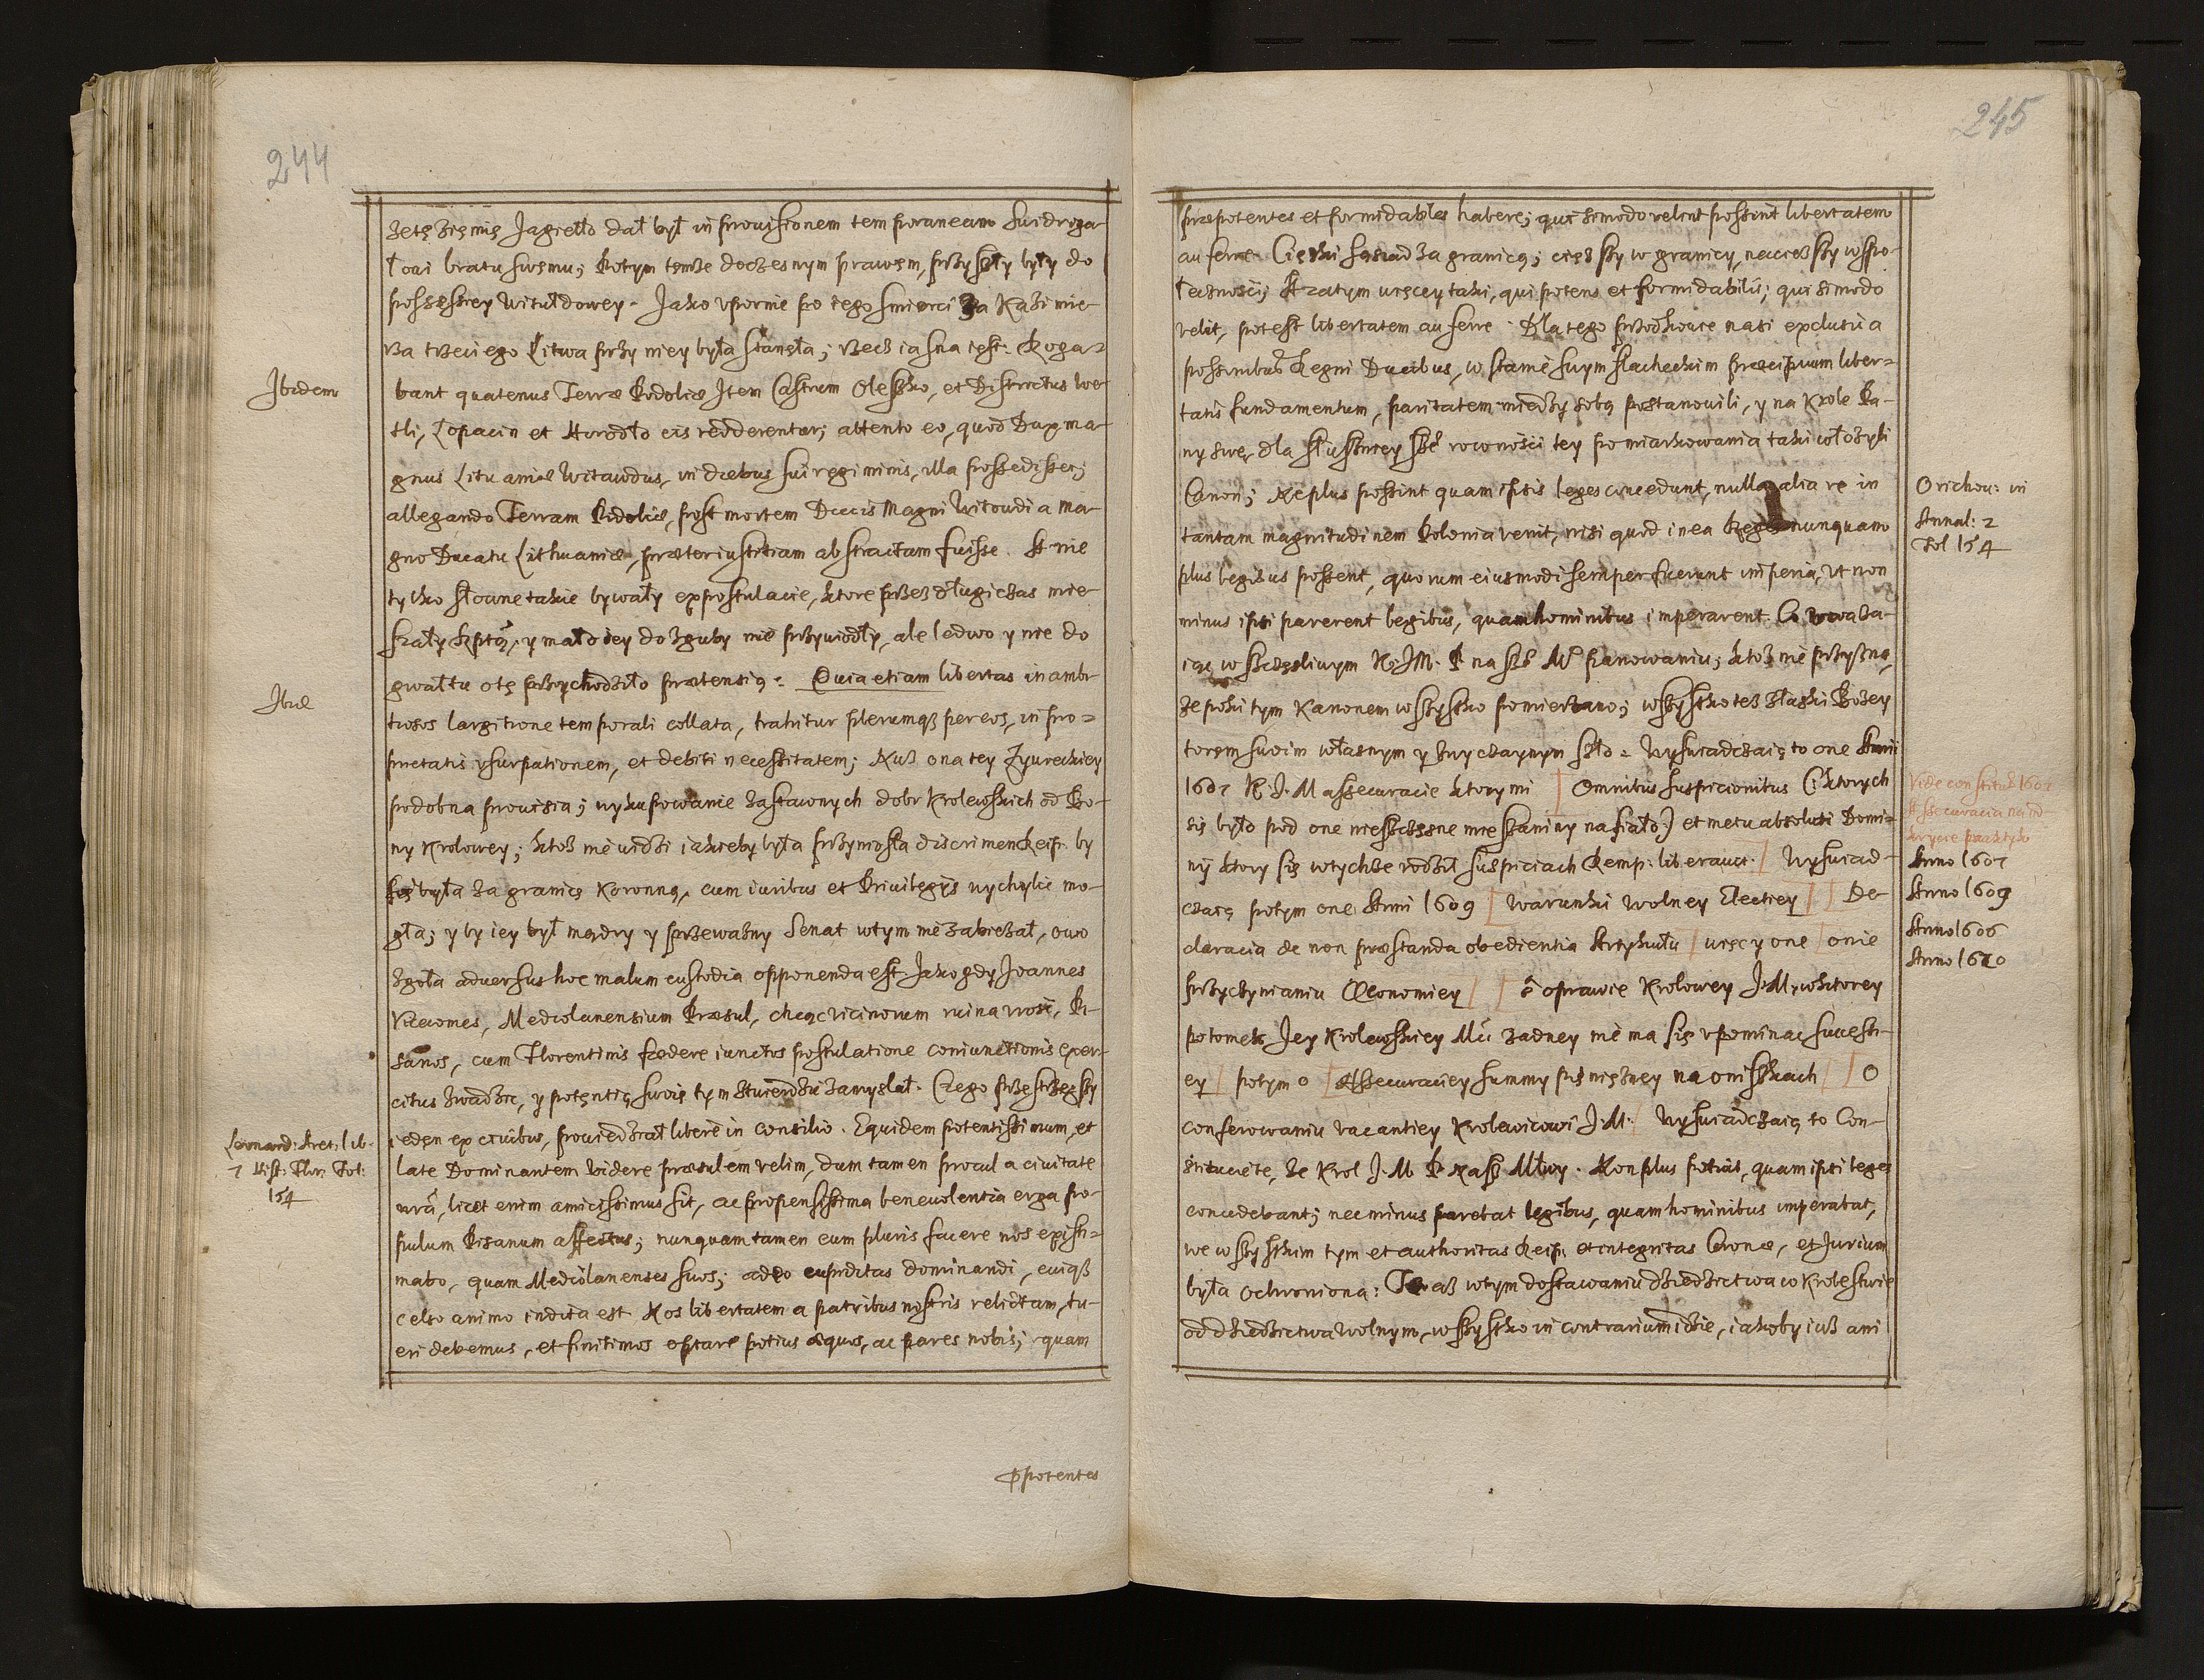 244
żetę ziemię Jagiełło dał był in provisionem temporaneam Suidryga-
łowi bratu swemu; Potym temże doczesnym prawem, przyszły były do
possessiey Witułdowey. Jako upornie po iego śmierci za Kazimie-
rza trzeciego Litwa przy niey była stanęła; rzecz iasna iest. Roga-
Ibidem
bant quatenus Terræ Podoliæ Item Castrum Olessko, et Districtus We-
tli, Łopacin et Horodło eis redderentur; attento eo, quod Dux ma-
gnus Lituaniæ Witawdus, in diebus sui regiminis, illa possedisset;
allegando Terram Podoliæ, post mortem Ducis Magni Witoudi a ma-
gno Ducatu Lithuaniæ, præter iustitiam abstractam fuisse. A nie
tylko słowne takie bywały expostulacie, ktore przez długi czas mie-
szały Rzptą, y mało iey do zguby nie przywiodły, ale ledwo y nie do
gwałtu o tę przychodziło prætensią: Quia etiam libertas in ambi-
Ibid
tiosos largitione temporali collata, trahitur plerumqz per eos, in pro-
prietatis usurpationem, et debiti necessitatem; Nuż ona tey Żywieckiey
podobna provisia; wykupowanie zastawnych dobr Krolewskich od Bo-
ny Krolowey; ktoż nie widzi iakieby była przyniosła discrimen Reip. by
się była za granicę Koronną, cum iuribus et Privilegijs wychylić mo-
gła; y by iey był mądry y przeważny Senat w tym nie zabieżał, owo
zgoła adversus hoc malum custodia opponenda est. Jako gdy Joannes
Vicecomes, Mediolanensium Præsul, chcąc vicinorum ruina rość, Pi-
sanos, cum Florentinis fœdere iunctos postulatione coniunctionis exer-
citus zwadzić, y potentię swoię tym ztwierdzić zamyslał. Czego przestrzegszy
Leonard: Aret: lib.
7 Hist: Flor: Fol:
154
ieden ex civibus, prowiedział libere in consilio. Equidem potentissimum, et
late Dominantem videre præsulem velim, dum tamen procul a civitate
nrã, licet enim amicissimus sit, ac propensissima benevolentia erga po-
pulum Pisanum affectus; nunquam tamen eum pluris facere nos existi-
mabo, quam Mediolanenses suos; adeo cupiditas dominandi, cuiqz
celso animo indita est. Nos libertatem a patribus nostris relictam, tu-
eri debemus, et finitimos optare potius æquos, ac pares nobis; quam
p̃potentes
245
præpotentes et formidabiles habere; qui si modo velint possint libertatem
auferre. Cięszki sąsiad za granicą; cięższy w granicy, naycięższy w spo-
łecznośći; A zatym więcey taki, qui potens et formidabilis; qui si modo
velit, potest libertatem auferre. Dlatego przodkowie nasi exclusis a
possinibus Regni Ducibus, w stanie swym slacheckim præcipuum liber-
tatis fundamentum, paritatem między sobą postanowili, y na Krole Pa-
ny swe, dla słuszney rowności tey pomiarkowania taki włożyli
Canon; Ne plus possint quam ipsis leges concedunt, nulla alia re in
Orichou: in
Annal: 2
Fol 154
tantam magnitudinem Polonia venit, nisi quod in ea Reges nunquam
plus legibus possent, quorum eiusmodi semper fuerunt imperia, ut non
minus ipsi parerent legibus, quam hominibus imperarent. Co uważa-
iąc w szczęśliwym K. J M. P. nasz M. panowaniu; ktoż nie przyzna,
że poki tym Kanonem wszystko pomierzano; wszystko też z łaski Bożey
torem swoim własnym y zwyczaynym szło: Wyswiadczaią to one Anni
1607 K. J. M assecuracie ktorymi Omnibus suspicionibus (: ktorych
Vide constitut: 1607
Assecuracia na
się było pod one nieszczesne mieszaniny nasiało:) et metu absoluti Domi-
nij ktory się w tychże rodził suspiciach Remp: liberavit. Wyswiad-
Anno 1607
czaią potym one Anni 1609 warunki wolney Electiey De-
Anno 1609
claracia de non præstanda obedientia Artykułu więcy one o nie
Anno 1606
Anno 1610
przyczynianiu Œconomiey o oprawie Krolowey J. M. w ktorey
potomek Jey Krolewskiey Mći zadney nie ma się upominać successi-
ey potym o Assecuraciey summy pieniężney na Oniszkach O
conferowaniu vacantiey Krolewicowi J. M. Wyswiadczaią to Con-
stitucie te, że Krol J. M. P. Nasz Młwy. Non plus potuit, quam ipsi leges
concedebant; nec minus parebat legibus, quam hominibus imperabat,
we wszystkim tym et authoritas Reip: et integritas Coronæ, et Jurium
była ochroniona: Teraz w tym dostawaniu dziedzictwa w Krolestwie
od dziedzictwa wolnym, wszystko in contrarium idzie, iakoby iuż ani